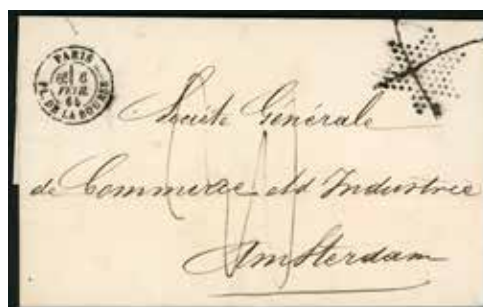 PARIS
6
FEVR.
64
PL. DE LA BOURSE
Société Générale
de Commerce et d'Industrie
Amsterdam